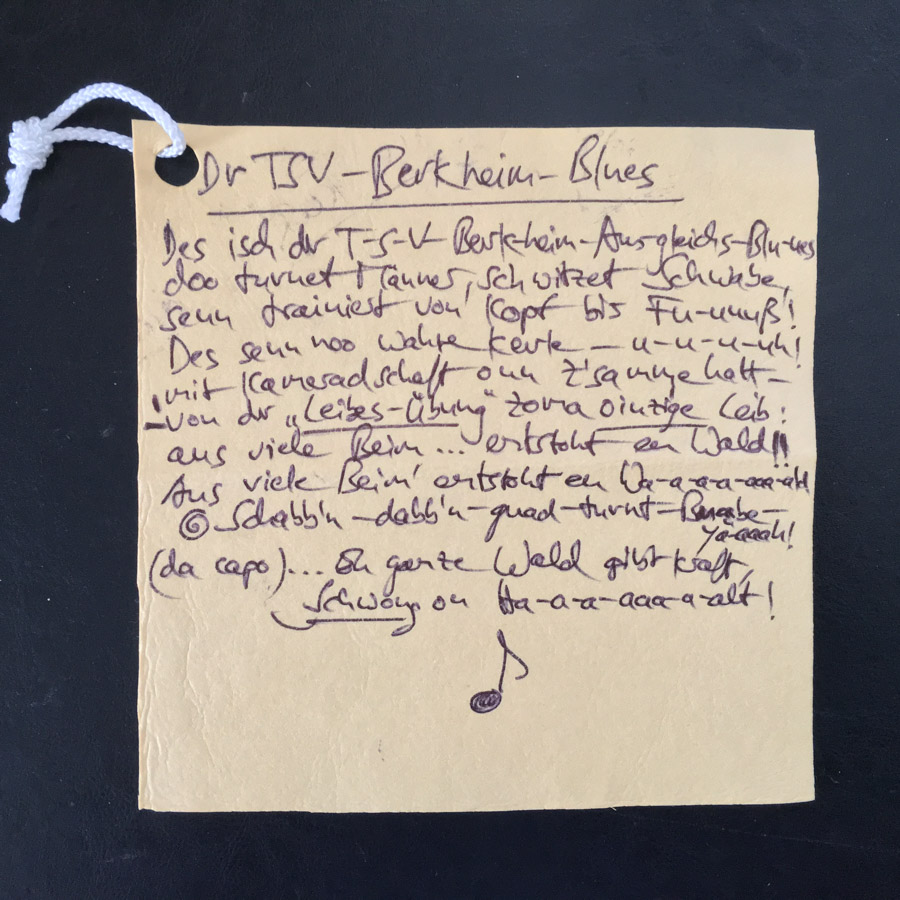 Dr TSV-Berkheim-Blues
Des isch dr T-S-V-Berk-heim-Ausgleichs-Blu-ues
doo turnet Männer, schwitzet Schwabe,
senn trainiert von Kopf bis Fu-uuuß!
Des senn noo wahre Kerle – u-u-u-uh!
mit Kameradschaft onn z'sammehalt –
von dr „Leibes-Übung" zoma oinzige Leib:
aus viele Beim... entstoht en Wald!!
Aus viele Beim' entstoht en Wa-a-a-a-aaa-ald
Schabb'n-dabb'n-guad-turnt-Buabe-
Yä-aaah!
(da capo)... En ganze Wald gibt Kraft,
Schwong on Ha-a-a-aaa-a-alt!